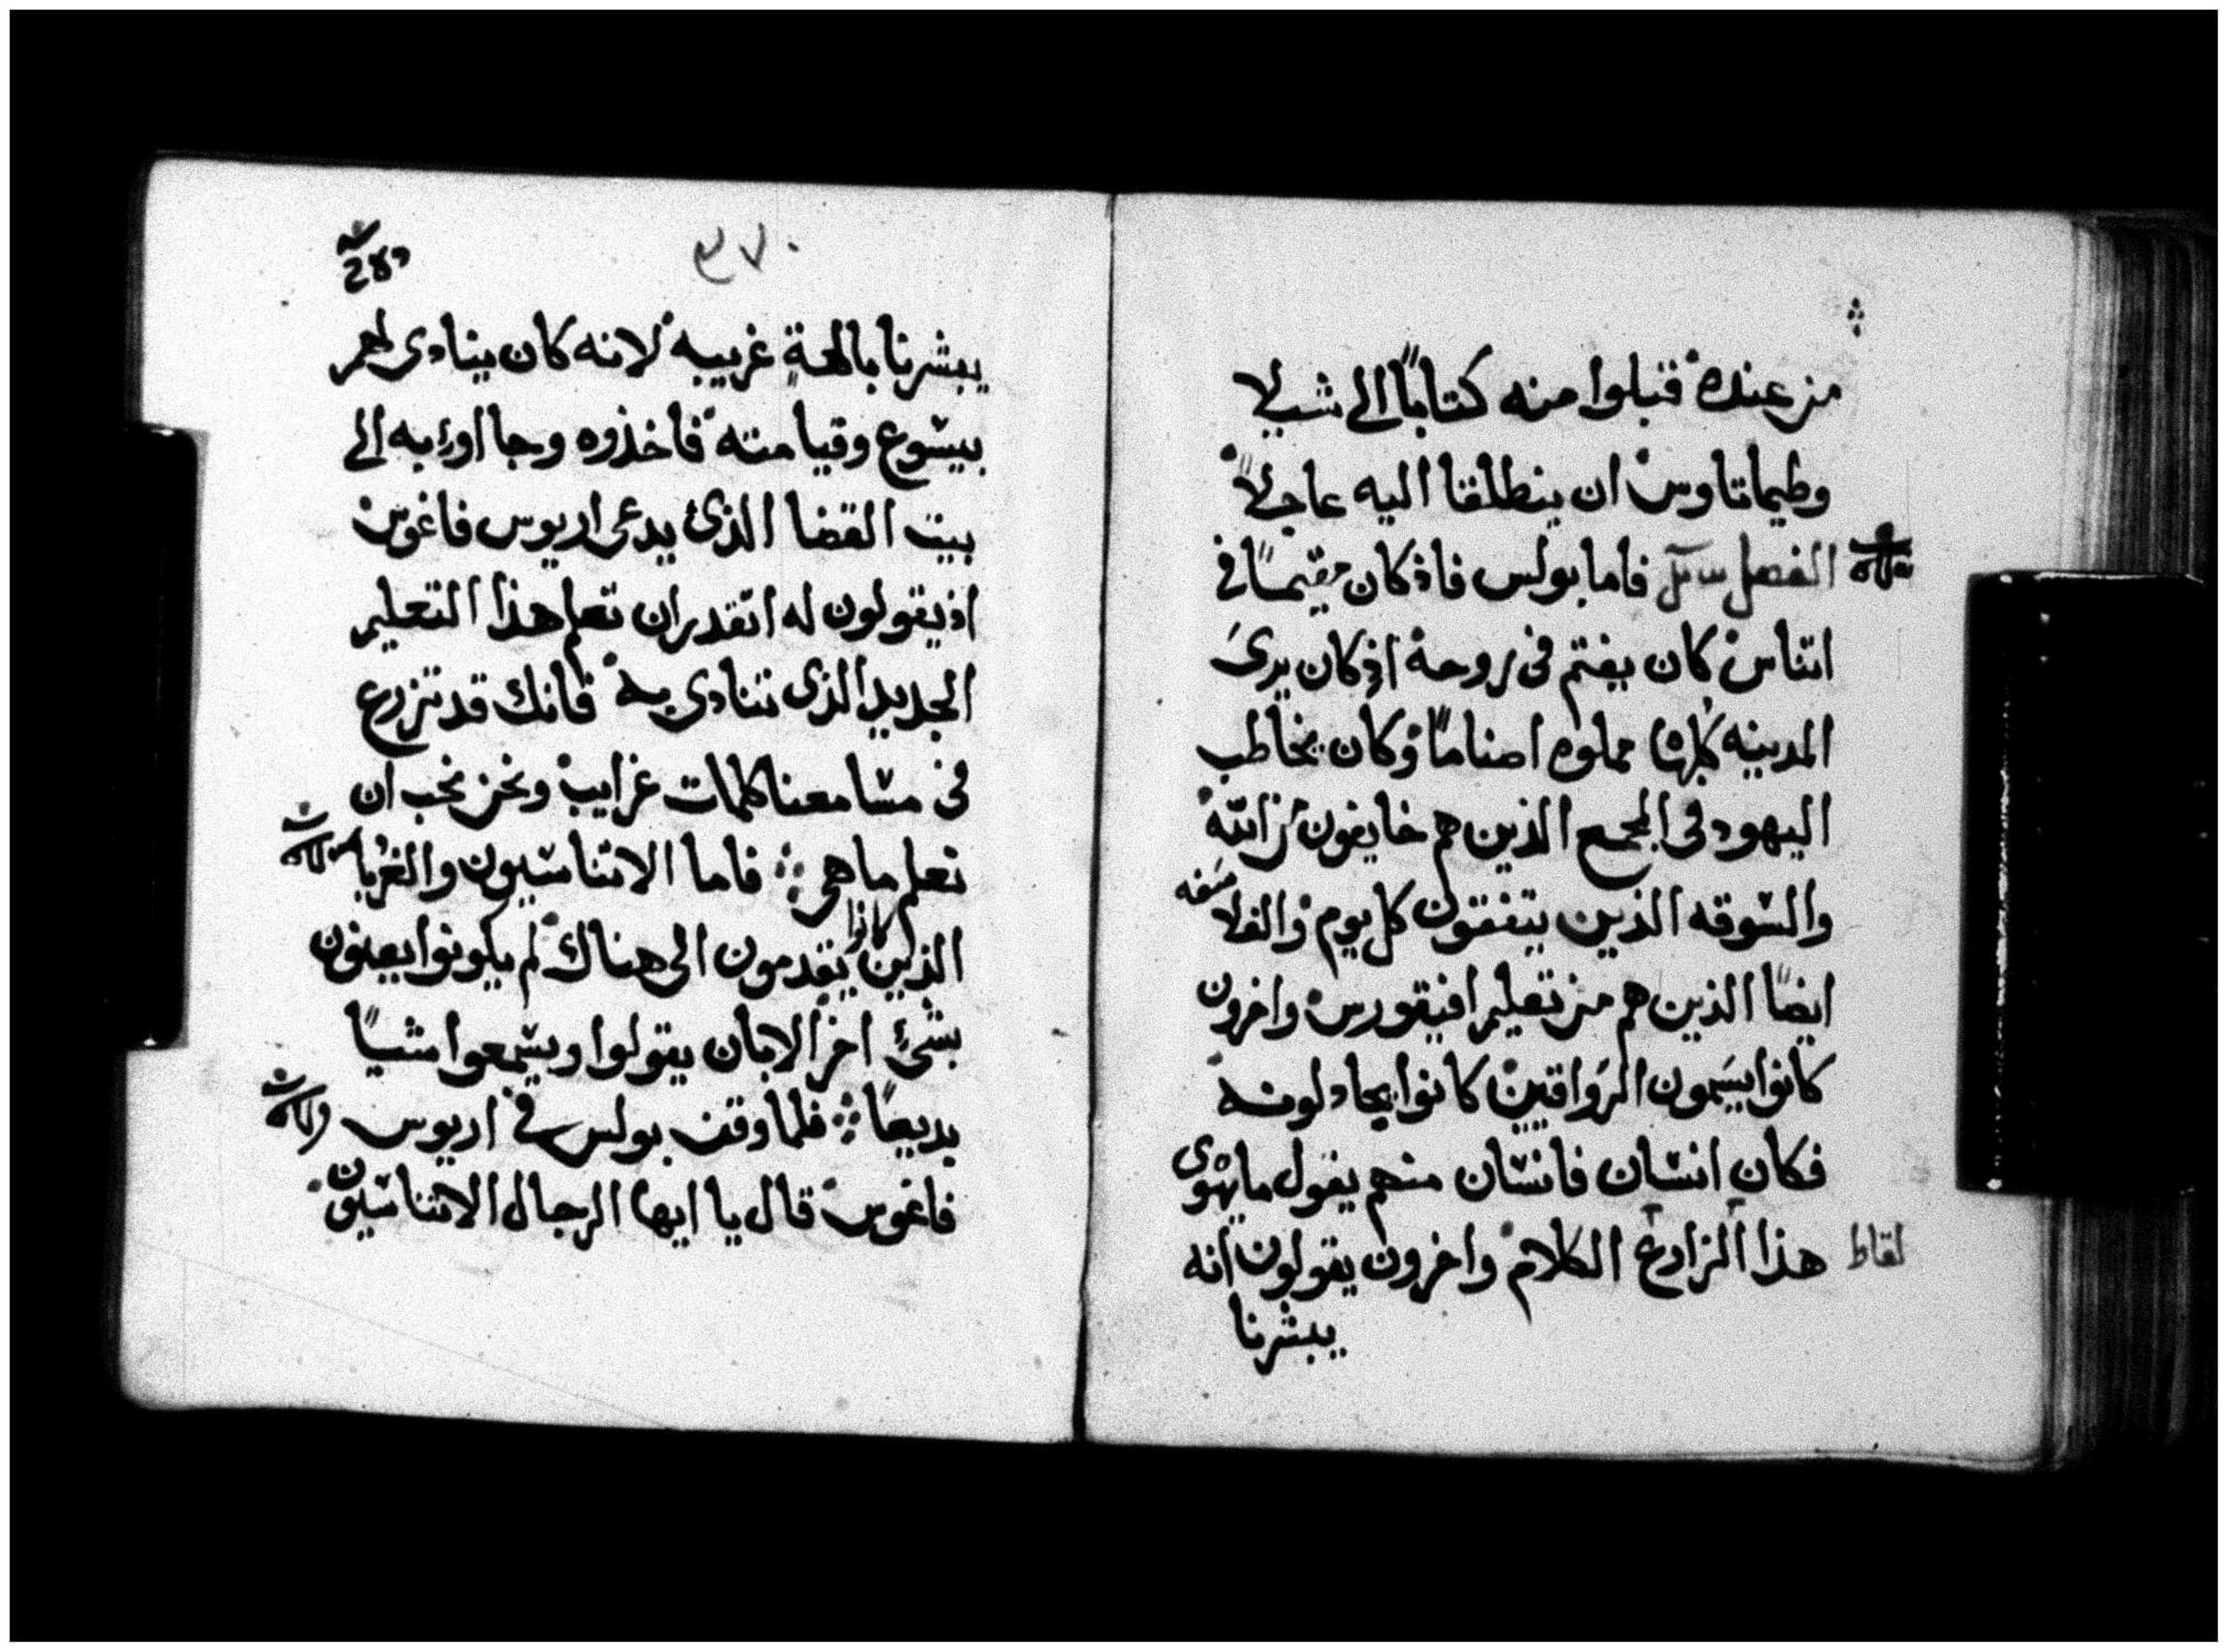 من عنده قبلوا منه كتابًا الى شيلا
وطيماتاوس ان ينطلقا اليه عاجلاً
الفصل فاما بولس فاذ كان مقيمًا في
اتناس كان يغتم في روحه اذ كان يرىَ
المدينه كلها مملوه اصنامًا وكان يخاطب
اليهود في المجمع الذين هم خايفون من الله
والسوقه الذين يتفقون كل يوم والفلاسفه
ايضًا الذين هم من تعليم افيقورس واخرون
كانوا يسَمون الرَواقيين كانوا يجادلونه
فكان انسان فانسان منهم يقول ما يهوى
هذا الزارع الكلام واخرون يقولون انه
لقاط
يبشرنا
٣٧٠
يبشرنا بالهةٍ غريبه لانه كان ينادى لهم
بيسوع وقيامته فاخذوه وجااوا به الى
بيت القضا الذى يدعى اريوس فاغوس
اذ يقولون له اتقدر ان تعلم هذا التعليم
الجديد الذى تنادى به فانك قد تزرع
في مسامعنا كلمات غرايب ونحن نحب ان
نعلم ما هي فاما الاتناسيون والغُربا
الذين كانوا يقدمون الى هناك لم يكونوا يعنون
بشئٍ اخر الا بان يقولوا ويسمعوا شيًا
بديعًا فلما وقف بولس في اريوس
فاغوس قال يا ايها الرجال الاتناسيون